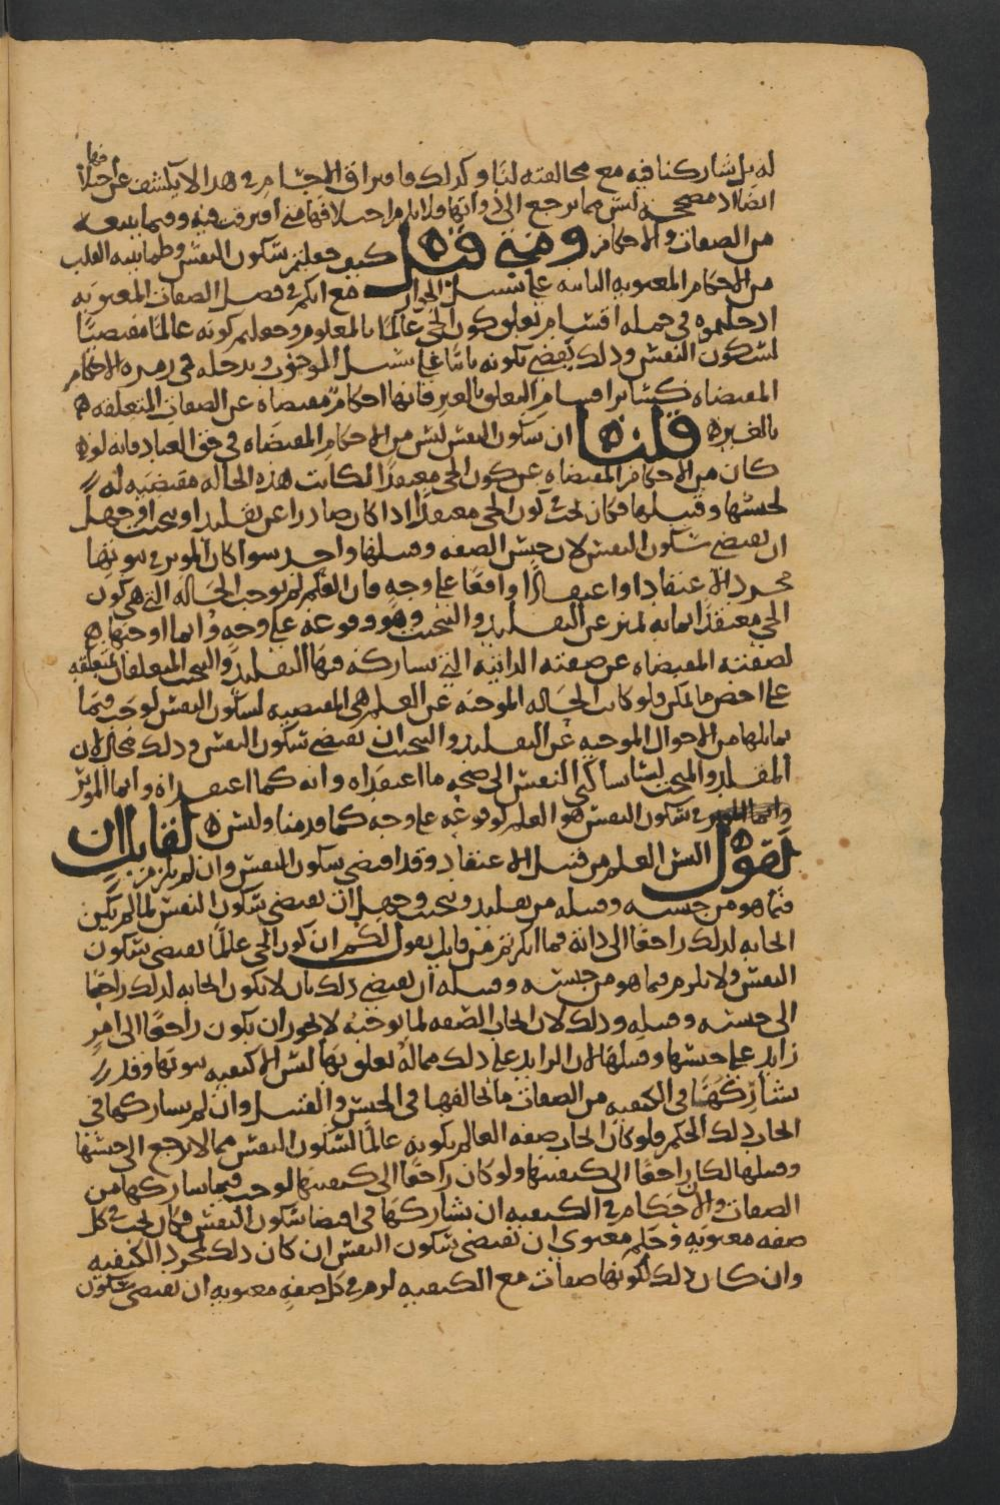 له بل شاركنا فيه مع مخالفته لنا وكذلك فافتراق الاجسام في هذا لا يكشف عن اختلافها
ايضا اذ مصححه ليس مما يرجع الى ذواتها فلا يلزم اختلافها متى افترقت فيه وفيما يتبعه
من الصفات والاحكام ومتى قيل كيف جعلتم سكون النفس وطمانينة القلب
من الاحكام المعنوية الثابتة على سبيل الجواز مع انكم في فصل الصفات المعنوية
ادخلتموه في جملة اقسام تعلق كون الحي عالما بالمعلوم وجعلتم كونه عالما مقتضيا
لسكون النفس وذلك يقضي بكونه ثابتا على سبيل الوجوب ويدخله في زمرة الاحكام
المقتضاة كسائر اقسام التعلق بالغير فانها احكام مقتضاة عن الصفات المتعلقة
بالغير قلنا ان سكون النفس ليس من الاحكام المقتضاة في حق العباد فانه لو
كان من الاحكام المقتضاة عن كون الحي معتقدا لكانت هذه الحالة مقتضية له
لجنسها وقبيلها فكان يجب في كون الحي معتقدا اذا كان صادرا عن تقليد او تبخيت او جهل
ان يقتضي سكون النفس لان جنس الصفة وقبيلها واحد سوا كان الموثر في ثبوتها
مجرد الاعتقاد او اعتقادا واقعا على وجه فان العلم لم يوجب الحالة التي هي كون
الحي معتقدا لما به تميز عن التقليد والتبخيت وهو وقوعه على وجه وانما اوجبها
لصفته المقتضاة عن صفته الذاتية التي يشاركه فيها التقليد والتبخيت المتعلقان بمتعلقه
على اخص ما يمكن فلو كانت الحالة الموجبة عن العلم هي المقتضية لسكون النفس لوجب فيما
يماثلها من الاحوال الموجبة عن التقليد والتبخيت ان يقتضي سكون النفس وذلك محال لان
المقلد والمبخت ليسا ساكني النفس الى صحة ما اعتقداه وانه كما اعتقداه وانما الموثر
في سكون النفس هو العلم لوقوعه على وجه كما قدمنا وليس لقايل ان
يقول اليس العلم من قبيل الاعتقاد وقد اقتضى سكون النفس وان لم يلزم
فيما هو من جنسه وقبيله من تقليد وتبخيت وجهل ان يقتضي سكون النفس لما لم يكن
ايجابه لذلك راجعا الى ذاته فما انكرتم من قايل يقول لكم ان كون الحي عالما يقتضي سكون
النفس ولا يلزم فيما هو من جنسه وقبيله ان يقتضي ذلك بان لا يكون ايجابه لذلك راجعا
الى جنسه وقبيله وذلك لان ايجاب الصفة لما توجبه لا يجوز ان يكون راجعا الى امر
زايد على جنسها وقبيلها لان الزايد على ذلك مما له تعلق بها ليس الا كيفية ثبوتها وقد
يشاركها في الكيفية من الصفات ما يخالفها في الجنس والقبيل وان لم يشاركها في
ايجاب ذلك الحكم فلو كان ايجاب صفة العالم بكونه عالما لسكون النفس مما لا يرجع الى جنسها
وقبيلها لكان راجعا الى كيفيتها ولو كان راجعا الى كيفيتها لوجب فيما شاركها من
الصفات والاحكام في الكيفية ان يشاركها في اقتضا سكون النفس فكان يجب في كل
صفة معنوية وحكم معنوي ان يقتضي سكون النفس ان كان ذلك لمجرد الكيفية
وان كان ذلك لكونها صفات مع الكيفية لزم في كل صفة معنوية ان تقتضي سكون